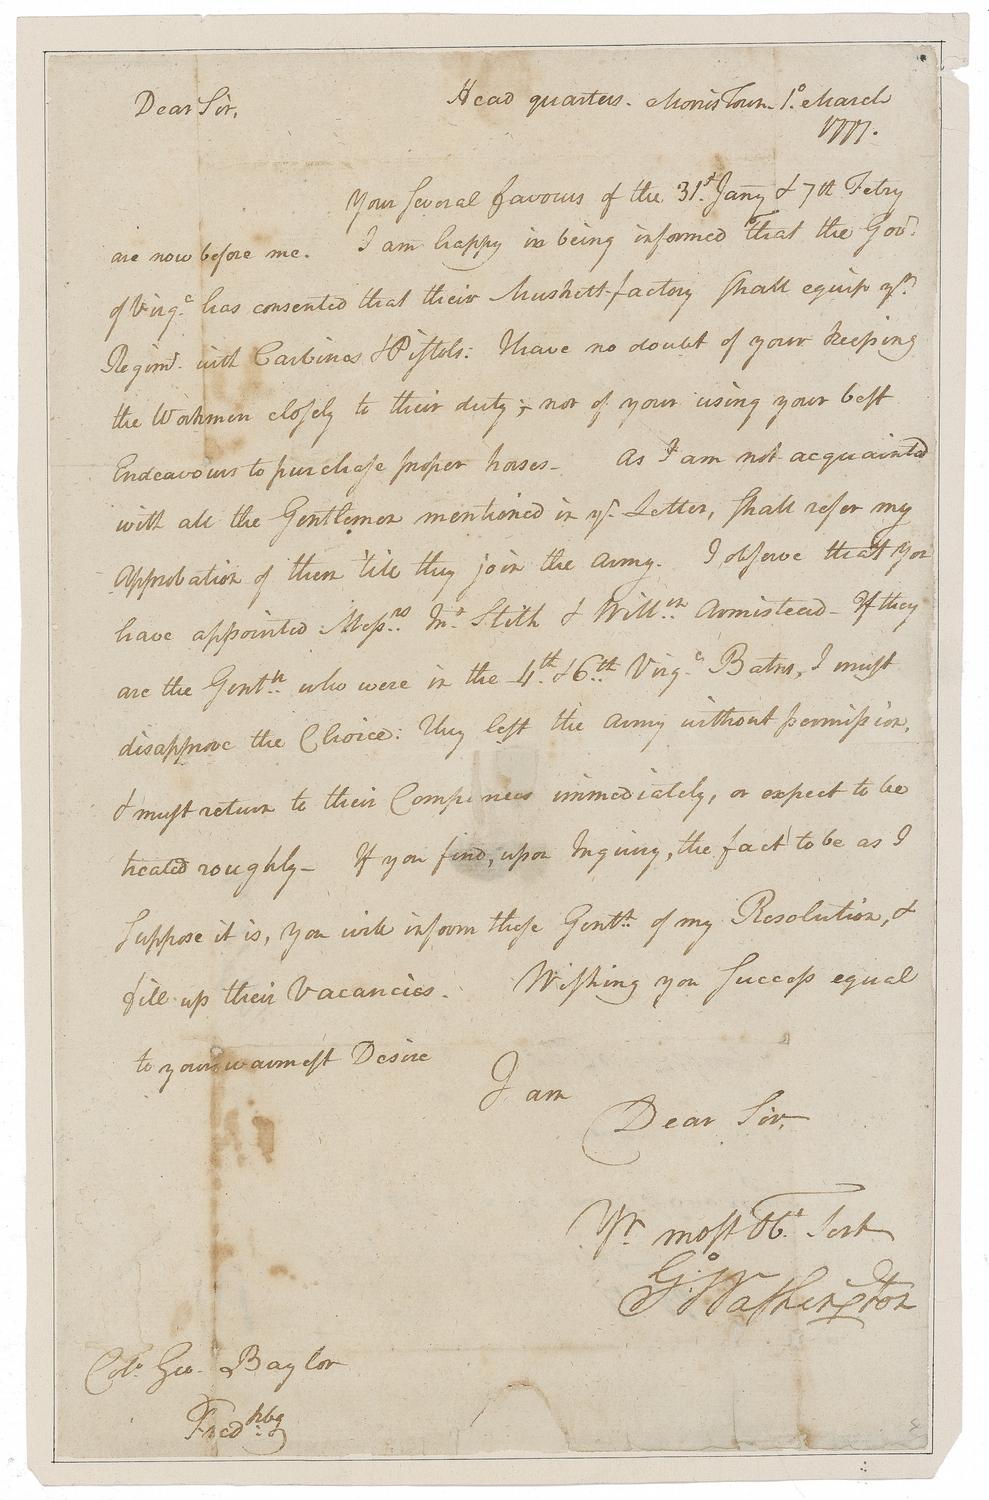 Dear Sir, Head quarters. Morris Town. 1o. March
1777.
Your several favours of the 31st. Jany & 7th Febry
are now before me. I am happy in being informed that the Govr.
of Virga. has consented that their Muskett-factory shall equip yr.
Regimt. with Carbines & Pistols: I have no doubt of your keeping
the Workmen closely to their duty, nor of your using your best
Endeavours to purchase proper horses- As I am not acquainted
with all the Gentlemen mentioned in yr. Letter, shall refer my
Approbation of them 'till they join the Army. I observe that you
have appointed Messrs. Jno. Stith & Willm. Armistead- If they
are the Gentn. who were in the 4th. & 6th. Virga. Batns, I must
disapprove the Choice: they left the Army without permission,
& must return to their Companies immediately, or expect to be
treated roughly- If you find, upon Inquiry, the fact to be as I
suppose it is, you will inform these Gentn. of my Resolution, &
fill up their Vacancies. Wishing you success equal
to your warmest Desire
I am
Dear Sir,
Yr. most Obt. Servt
Go. Washington
Colo. Geo. Baylor
Fredksbg